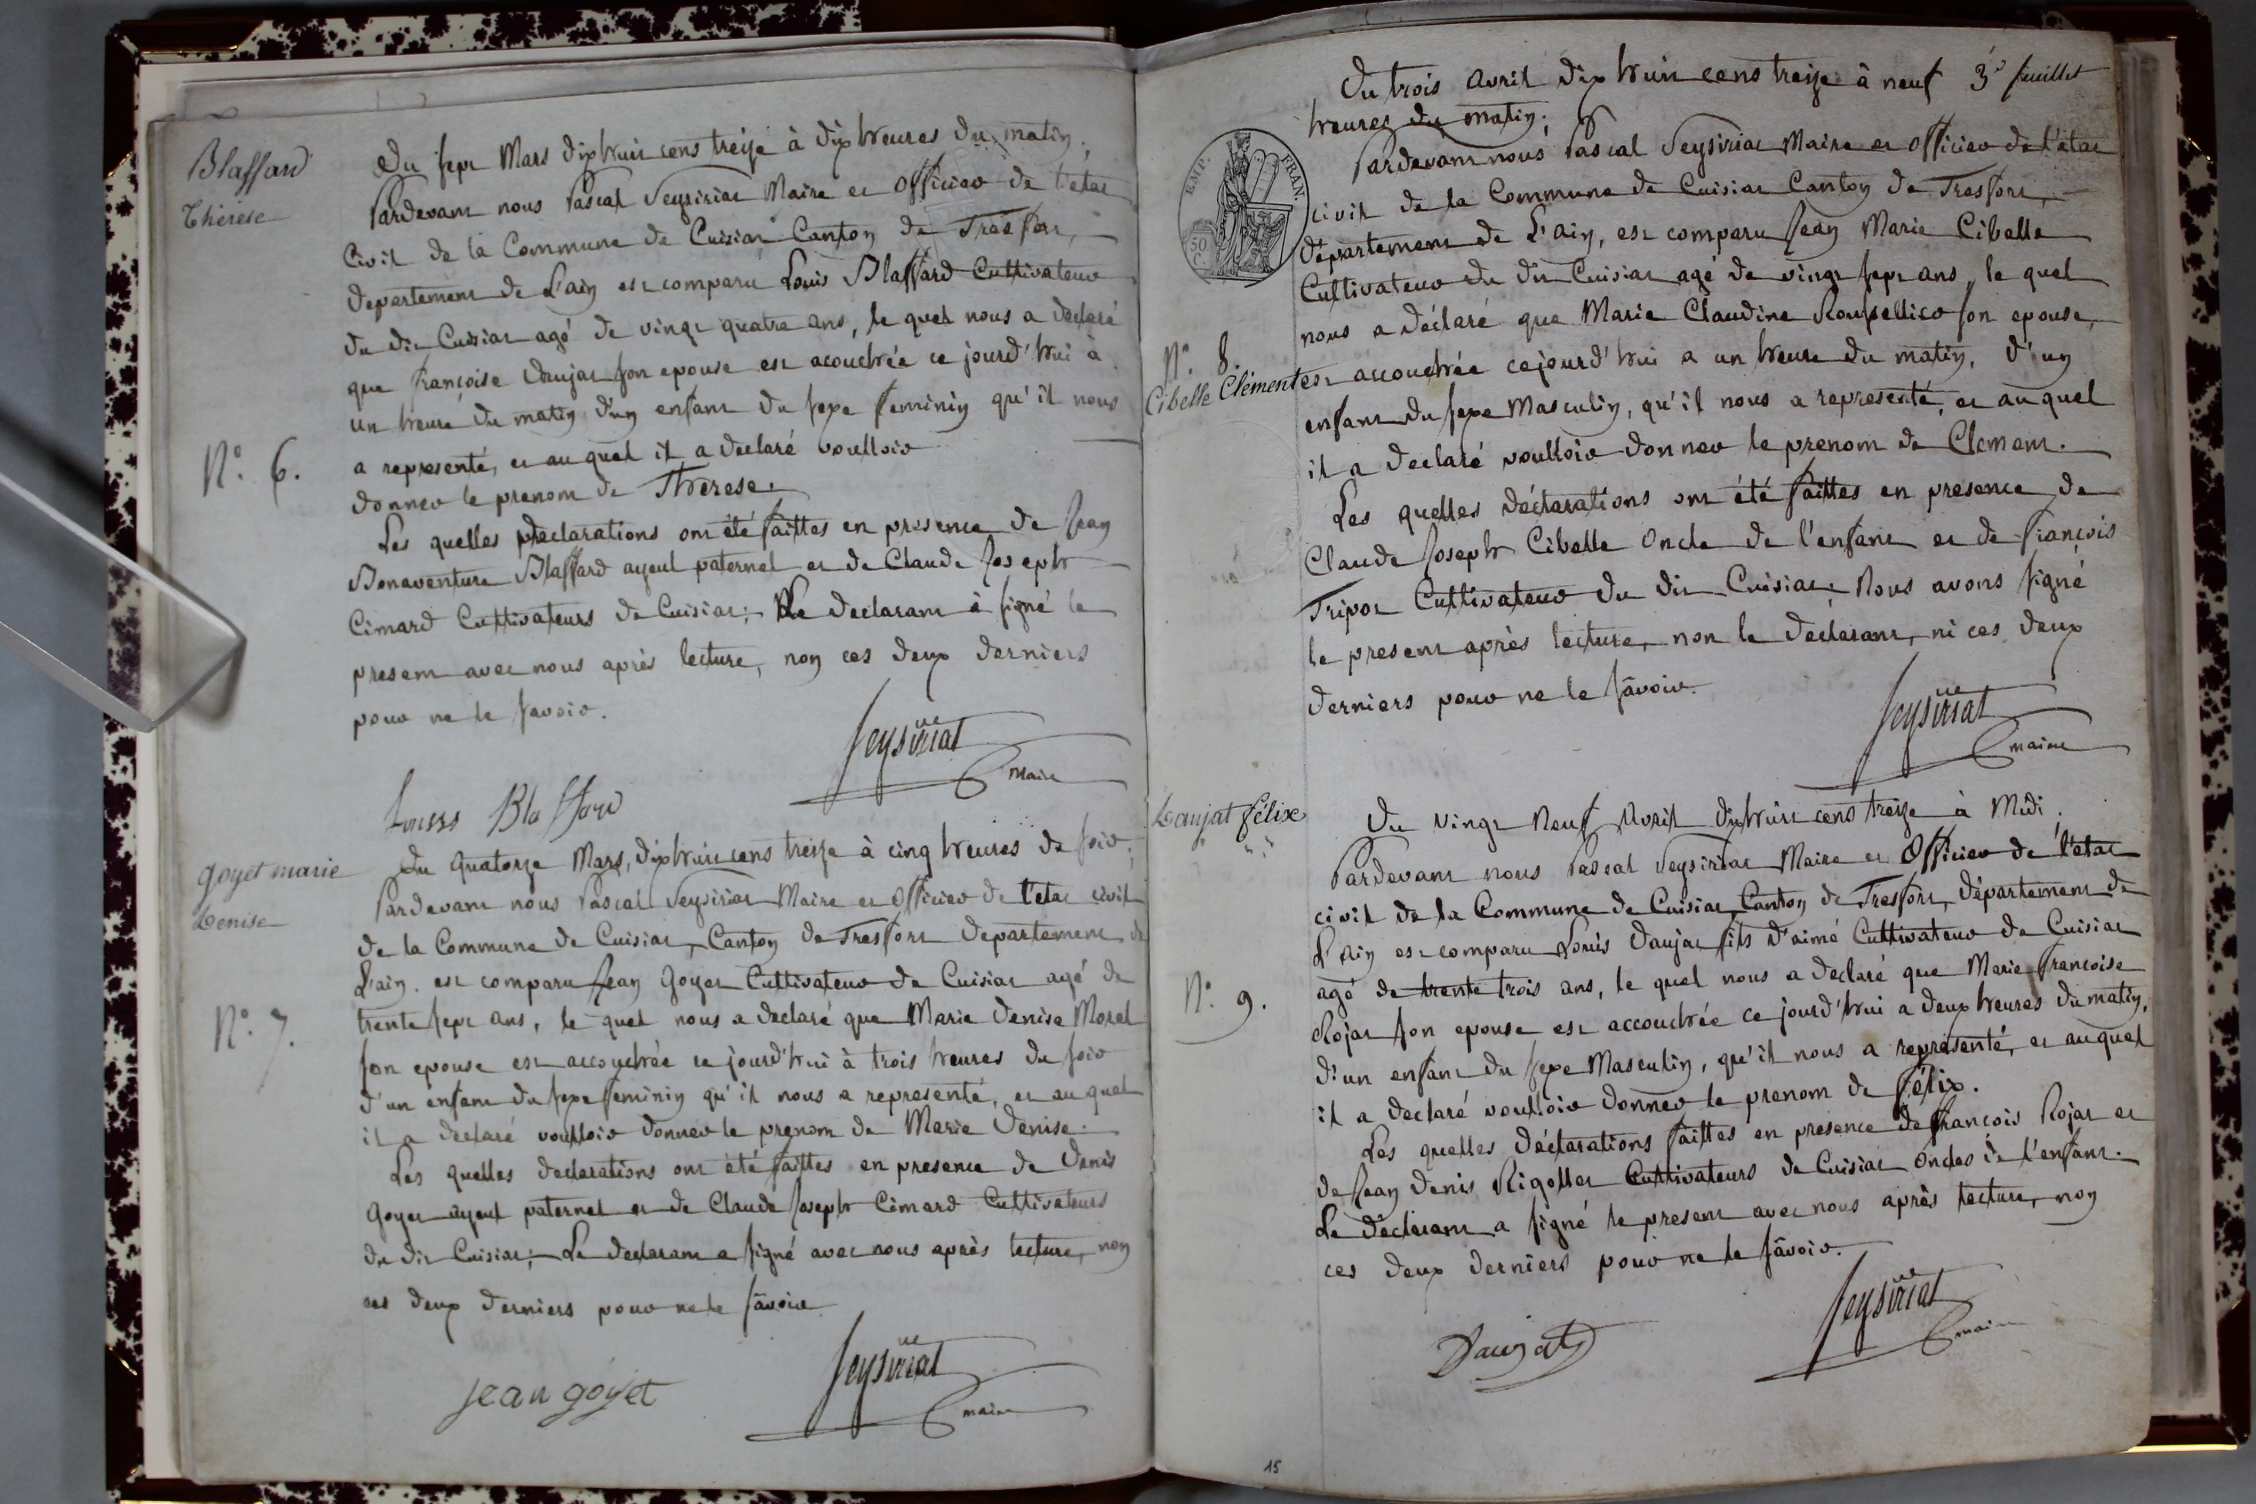 Blaffard
Thérèse
N°. 6.
Du sept Mars dix huit cens treize à dix heures du matin.
Pardevant nous Pascal Seysiriat Maire et Officier de l'état
Civil de la Commune de Cuisiat Canton de Tresfort,
departement de L'ain est comparu Louis Blaffard Cultivateur
du dit Cuisiat agé de vingt quatre ans, le quel nous a declaré
que françoise Daujat son epouse est acouchée ce jourd'hui à
un heure du matin d'un enfant du sexe feminin qu'il nous
a representé, et au quel il a declaré voulloir
donner le prenom de Therese.
Les quelles declarations ont été faittes en presence de Jean
Bonaventure Blaffard ayeul paternel et de Claude Joseph
Cimard Cultivateurs de Cuisiat; Le declarant à signé le
present avec nous après lecture, non ces deux derniers
pour ne le savoir.
Seysiriat
maire
Louis Blaffard
goyet marie
Denise
N°. 7.
Du quatorze Mars, dix huit cens treize à cinq heures de soir;
Pardevant nous Pascal Seysiriat Maire et Officier de l'etat civil
de la Commune de Cuisiat, Canton de Tresfort departement de
L'ain. est comparu Jean Goyet Cultivateur de Cuisiat agé de
trente sept ans, le quel nous a declaré que Marie Denise Morel
son epouse est accouchée ce jourd'hui à trois heures du soir
d'un enfant du sexe feminin qu'il nous a representé, et au quel
il a declaré voulloir donner le prenom de Marie Denise.
Les quelles declarations ont été faittes en presence de Denis
Goyet ayeul paternel et de Claude Joseph Cimard Cultivateurs
du dit Cuisiat; Le declarant a signé avec nous après lecture, non
ces deux derniers pour ne le sâvoir
Seysiriat
maire
jean goyet
3e feuillet
EMP. FRAN.
50 C.
N°. 8.
Cibelle Clément
Du trois avril dix huit cens treize à neuf
heures du matin;
Pardevant nous Pascal Seysiriat Maire et Officier de l'état
civil de la Commune de Cuisiat Canton de Tresfort,
département de L'ain, est comparu Jean Marie Cibelle
Cultivateur du dit Cuisiat agé de vingt sept ans, le quel
nous a déclaré que Marie Claudine Roussellier son epouse,
est accouchée cejourd'hui a un heure du matin, d'un
enfant du sexe Masculin, qu'il nous a representé, et au quel
il a declaré voulloir donner le prenom de Clemant.
Les quelles déclarations ont été faittes en presence de
Claude Joseph Cibelle Oncle de l'enfant et de françois
Tripoz Cultivateur du dit Cuisiat. Nous avons signé
le present après lecture, non le déclarant, ni ces deux
derniers pour ne le sâvoir.
Seysiriat
maire
Daujat félix
N°. 9.
Du vingt Neuf Avril dix huit cens treize à Midi.
Pardevant nous Pascal Seysiriat Maire et Officier de l'état
civil de la Commune de Cuisiat, Canton de Tresfort, Département de
L'Ain est comparu Louis Daujat fils d'aimé Cultivateur de Cuisiat
agé de trente trois ans, le quel nous a declaré que Marie françoise
Rojat son epouse est accouchée ce jourd'hui a deux heures du matin,
d'un enfant du sexe Masculin, qu'il nous a representé, et au quel
il a declaré voulloir donner le prenom de félix.
Les quelles déclarations faittes en presence de françois Rojat et
de Jean Denis Rigollet Cultivateurs de Cuisiat Oncles de l'enfant.
Le déclarant a signé le present avec nous après lecture, non
ces deux derniers pour ne le sâvoir.
Seysiriat
maire
Daujat
15